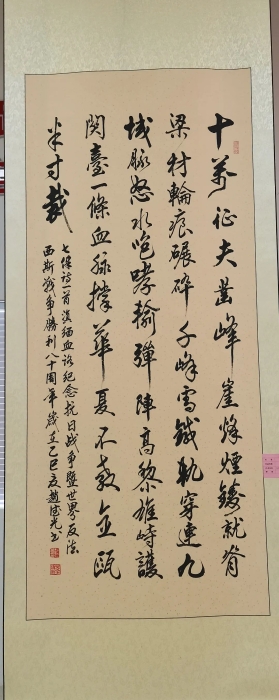 十萬征夫凿峰崖烽煙鑄就脊
梁材輪痕碾碎千峰雪鐵軌穿連九
域脈怒水咆哮輸彈陣高黎雄峙護
関臺一條血脉撑華夏不教金甌
半寸裁
七律詩一首滇缅血路紀念抗日战争暨世界反法
西斯战争勝利八十周年歲在乙巳夏趙光书